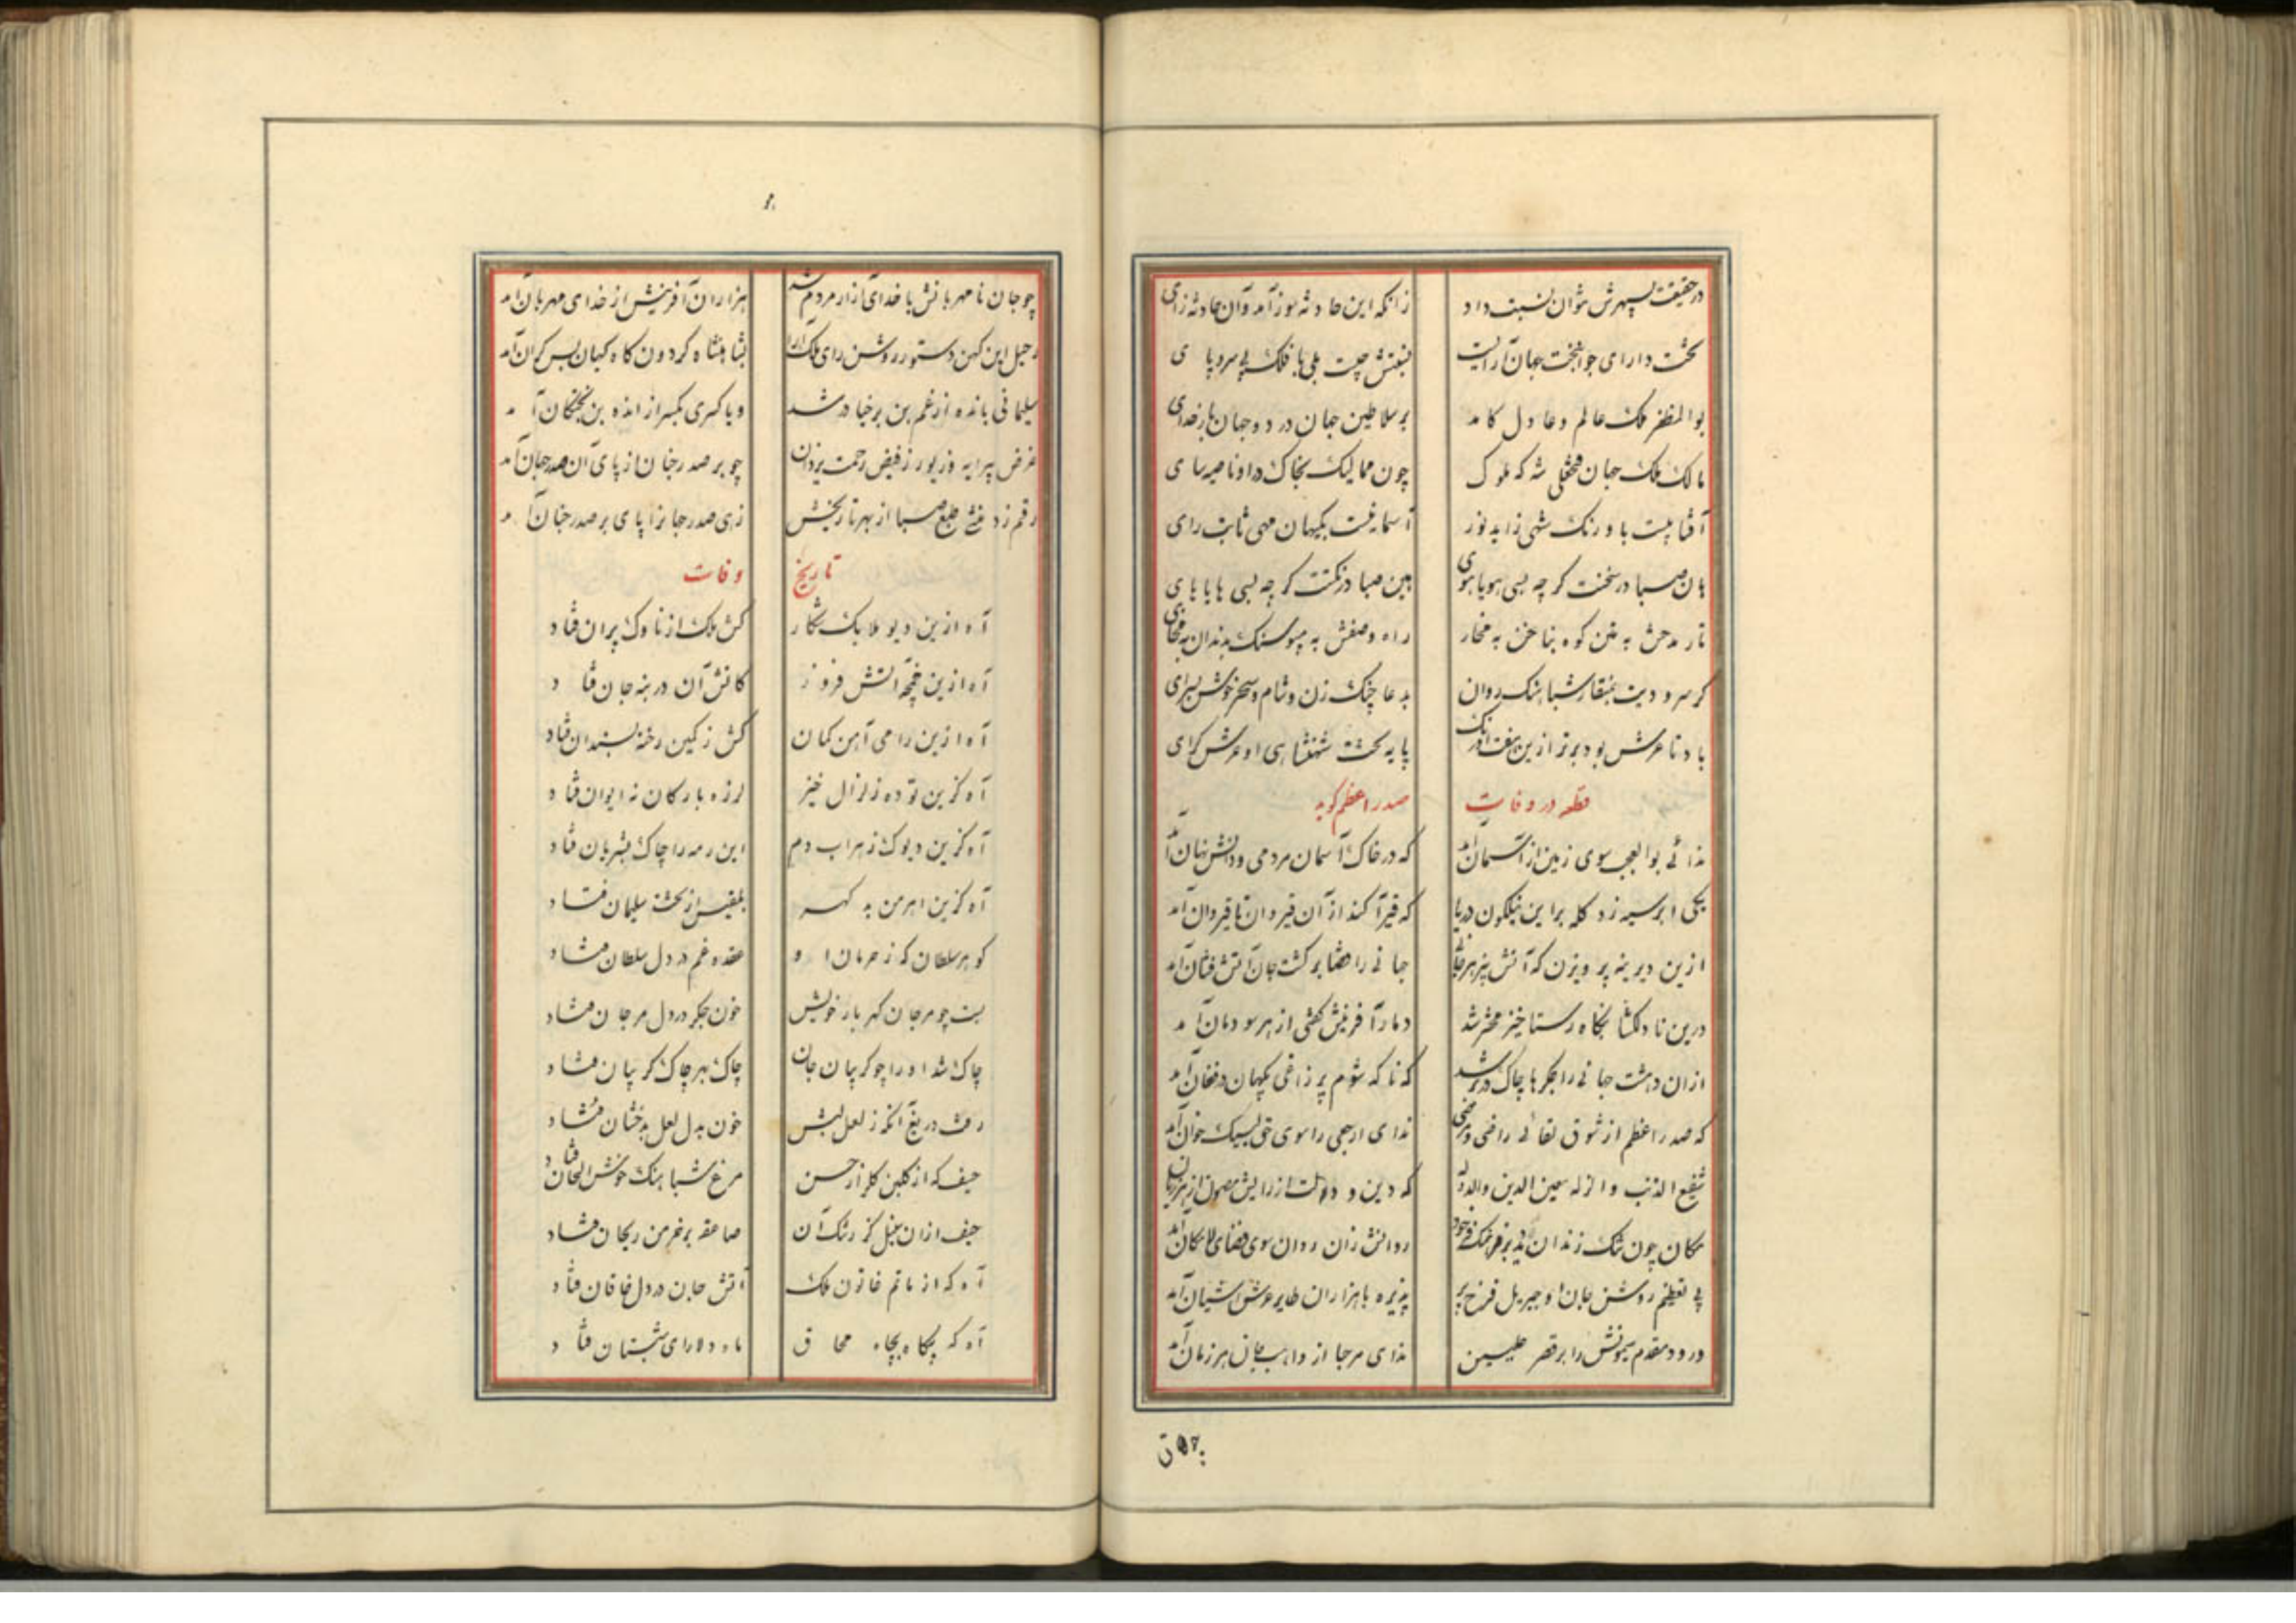 در حقیقت بسپهرش نتوان نسبت داد
زانکه این حادثه سوز آمد و آن حادثه زای
تخت دارای جوانبخت جهان آرا
نسبتش چیست بلی با فلک بی سر و پا ی
بوالمظفر ملک عالم و عادل کامد
بر سلاطین جهان در دو جهان بار خدای
مالک ملک جهان فتحعلی شه که ملوک
چون ممالیک بخاک در او ناصیه سای
آفتابیست باورنگ شهی زاید نور
آسمانیست بکیهان مهی ثابت رای
هان صبا در سخنت گر چه بسی هویاهوی
بین صبا در گر چه بسی هایاهای
تار مدحش به کوه بناخن به مخار
راه وصفش به سنک بدندان به مخای
گر سرودیت بمنقار شباهنک روان
بدعا چنک زن و شام و سحر خوش بسرای
باد تا عرش بود برتر ازین هفت اورنک
پایه تخت شهنشاهی او عرش گرای
قطعه در وفات صدر اعظم گوید
ندائی بوالعجب سوی زمین از آسمان آمد
که در خاک آسمان مردمی و دانش نهان آمد
یکی ابر سیه زد کله بر این نیلگون دریا
که قیرآکند از آن قیروان تا قیروان آمد
ازین دیرینه پرویزن که آتش بیز بر
جهانی را فشابر کشت جان آتش فشان آمد
درین نادلگشا بنگاه رستاخیز محشر شد
دمار آفرینش گفتی از هر سو دمان آمد
ازان دهشت جهانی را جگرها چاک در بر شد
که ناگه شوم پر زاغی بکیهان در فغان آمد
که صدر اعظم از شوق لقائی راضی و مرضی
ندای ارجعی را سوی حق لبیک خوان آمد
شفیع الذنب و الزله معین الدین والدوله
که دین و دولت از رایش مصون از هر زیان آمد
مکان چون تنک زندان
روانش زان روان سوی فضای لامکان آمد
پی تعظیم روشن جان او جبریل فرخ پر
پذیره با هزاران طایر عرش آشیان آمد
ورود مقدم میمونش را بر قصر علیین
ندای مرحبا از واهب جان هر زمان آمد
چو جان نامهربانش با خدای آزار مردم شد
هزاران آفرینش از خدای مهربان آمد
رحیل این کهن دستور روشن رای ملک آرا
بشاهنشاه گردون گاه کیهان بس گران آمد
سلیمانی بانده از غم بن برخیا در شد
و یا کسری یکسر از انده بن بختکان آمد
غرض پیرایه و زیور ز فیض رحمت یزدان
چو بر صدر جنان از پای آن صدر جهان آمد
رقم زد منشی طبع صبا از بهر تاریخش
زهی صدر جهانرا پای بر صدر جنان آمد
تاریخ وفات
آه ازین دیو ملایک شکار
کش ملک از ناوک پران فتاد
آه ازین آتش فروز
کاتش آن در بنه جان فتاد
آه ازین رامی آهن کمان
کش ز کمین رخنه بسندان فتاد
آه کزین توده زلزال خیز
لرزه بارکان نه ایوان فتاد
آه کزین دیوک زهراب دم
این رمه را چاک بشریان فتاد
آه کزین اهرمن بد گهر
بلقیس از تخت سلیمان فتاد
گوهر سلطان که ز حرمان او
عقده غم در دل سلطان فتاد
بست چو مرجان گهربار خویش
خون جگر در دل مرجان فتاد
چاک شد او را چو گریبان جان
چاک بهر چاک گریبان فتاد
رفت دریغ آنکه ز لعل لبش
خون بدل لعل بدخشان فتاد
حیف که از گلبن گلزار حسن
مرغ شباهنک خوش الحان فتاد
حیف ازان سنبل کز رشک آن
صاعقه بر خرمن ریحان فتاد
آه که از ماتم خاتون ملک
آتش جان در دل خاقان فتاد
آه که بیگاه بچاه محاق
ماه دلارای شبستان فتاد